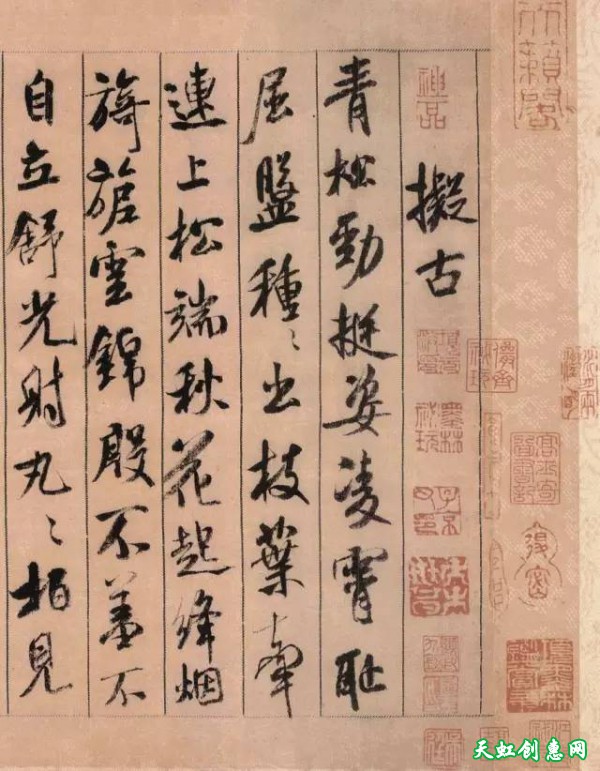 天籟閣
神品
擬古
青松勁挺姿凌霄耻
屈盤種〻出枝葉牽
連上松端秋花起絳烟
旖旎雲錦殷不羞不
自立舒光射丸〻柏見
天虹创惠网